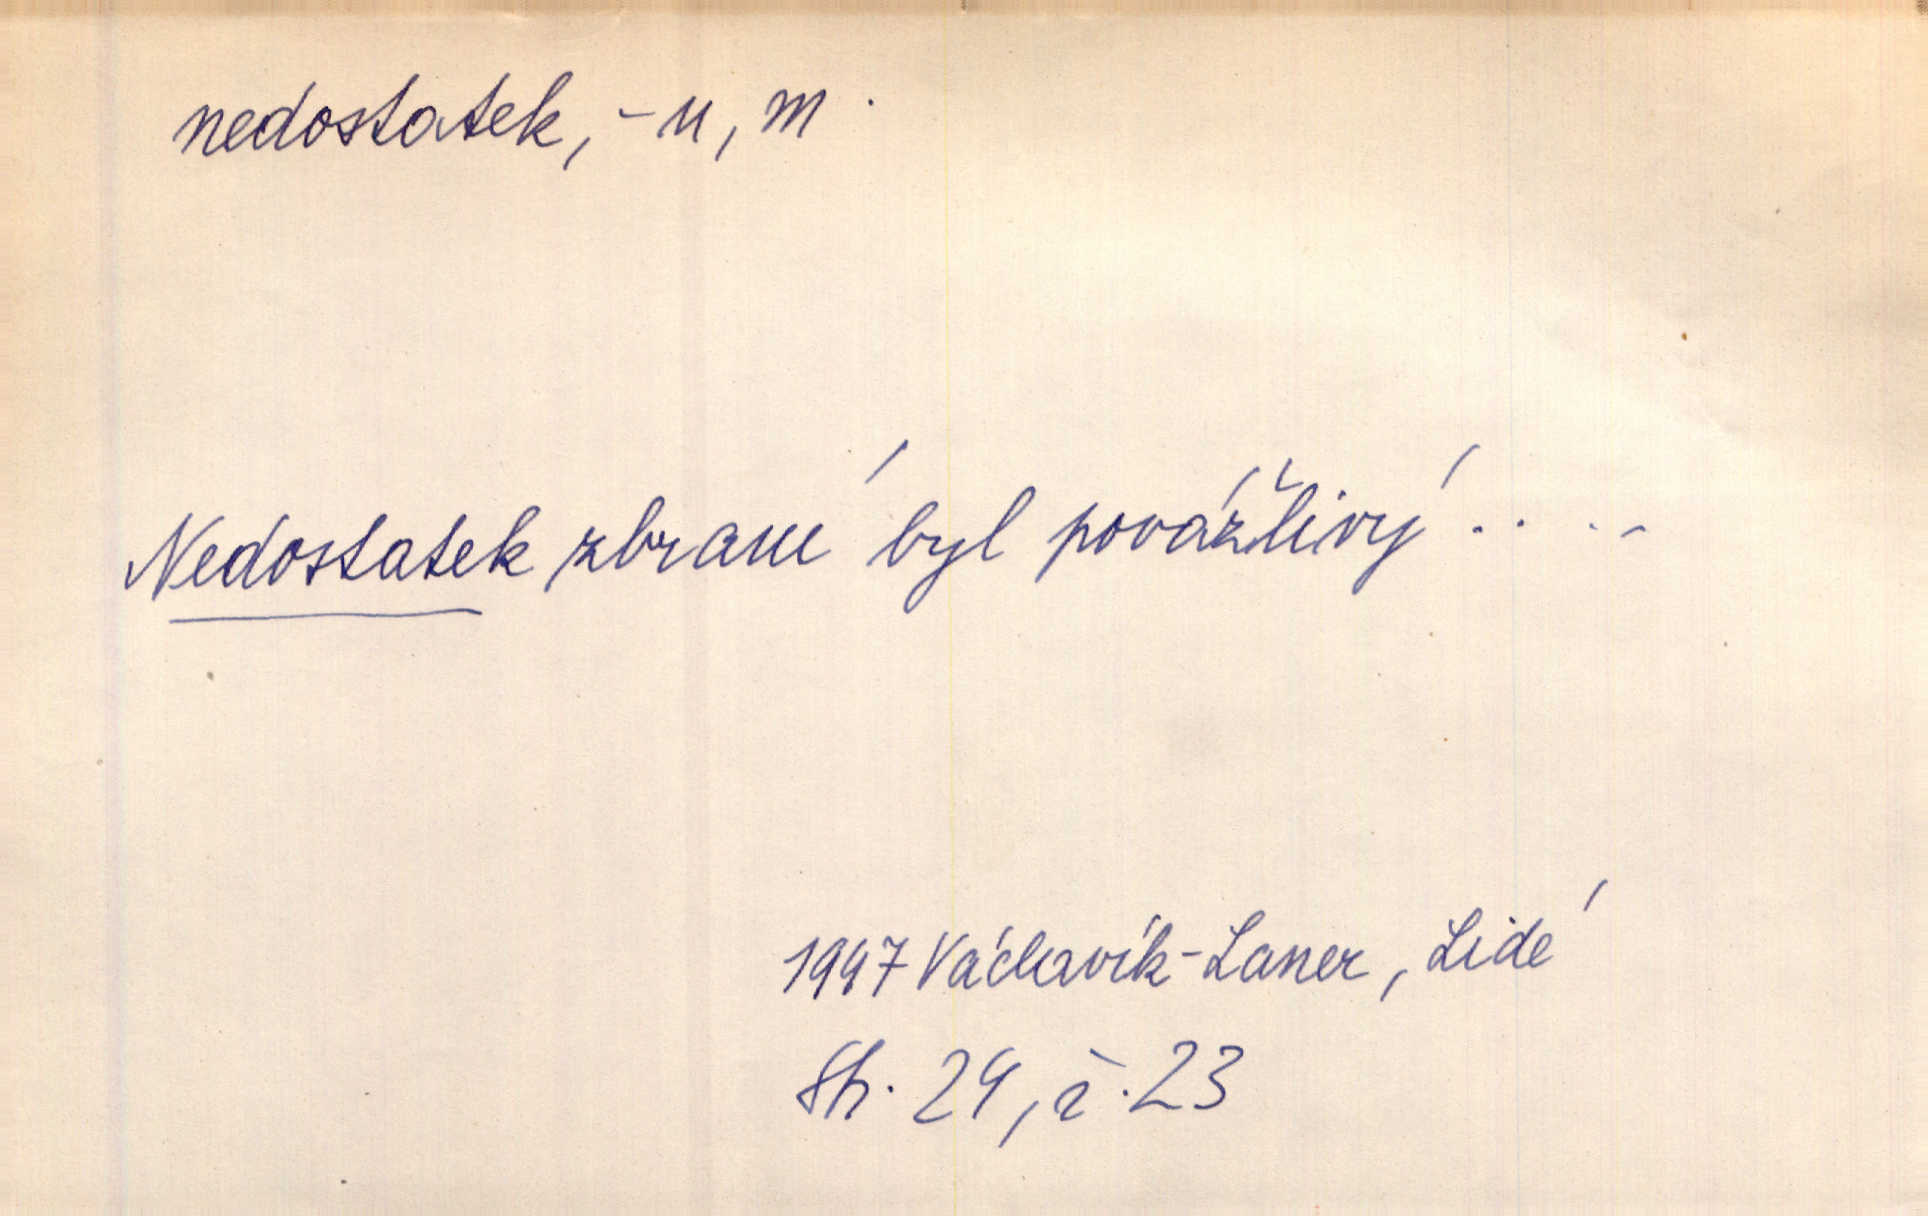 nedostatek, -u, m.
Nedostatek zbraní byl povážlivý....
1947 Václavík-Laner, Lidé
Str. 24, ř. 23